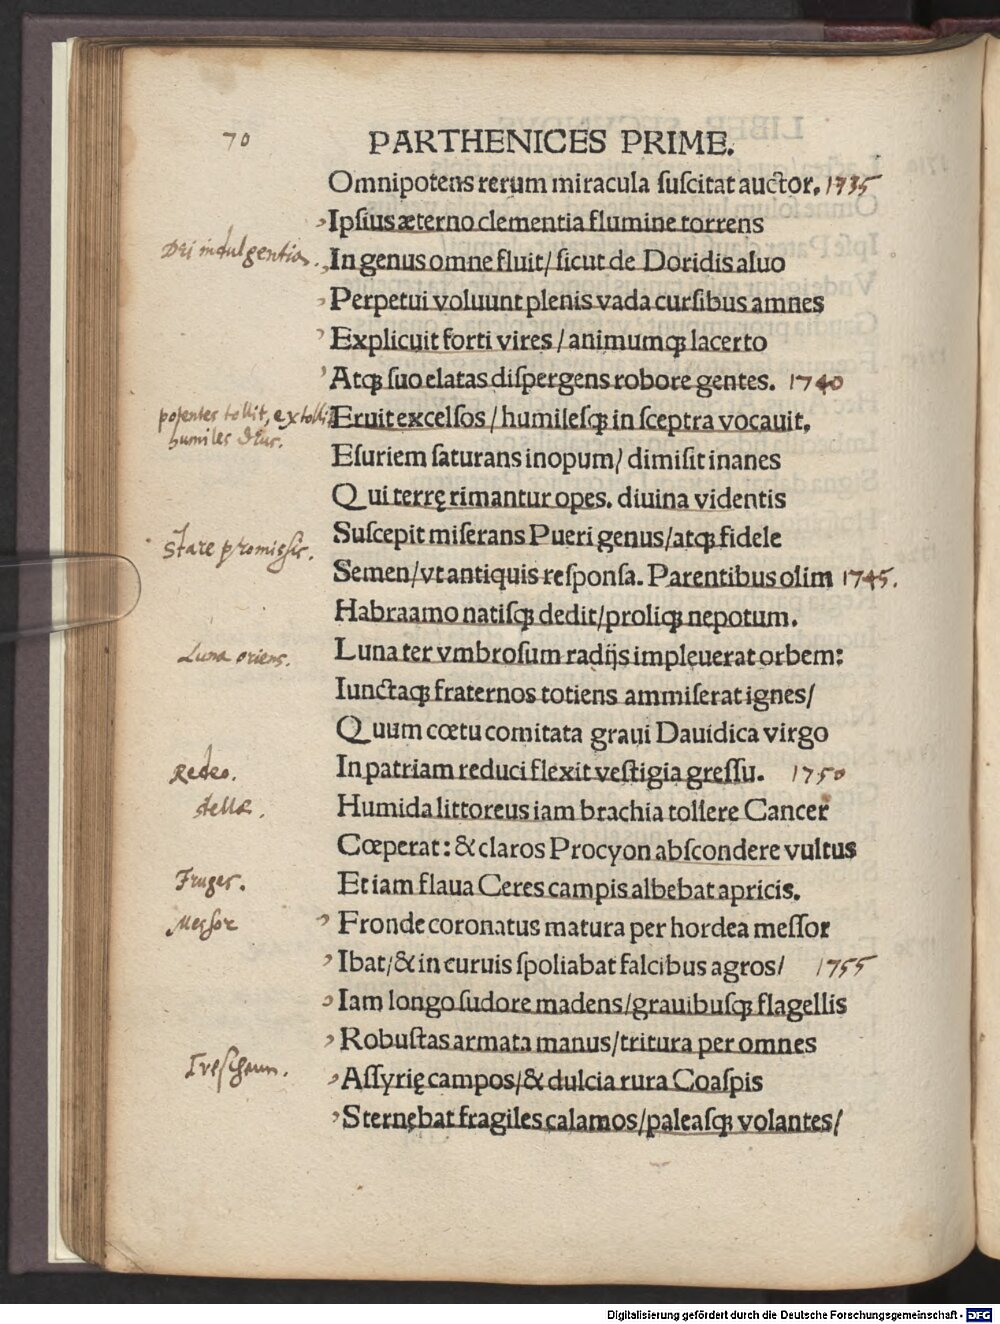 70
PARTHENICES PRIME.
Omnipotens rerum miracula ſuſcitat auctor. 1735
Ipſius æterno clementia flumine torrens
Dei indulgentia.
In genus omne fluit/ ſicut de Doridis aluo
Perpetui voluunt plenis vada curſibus amnes
Explicuit forti vires / animumqꝫ lacerto
Atqꝫ ſuo elatas diſpergens robore gentes. 1740
potentes tollit, extollit
humiles Deus.
Eruit excelſos / humileſqꝫ in ſceptra vocauit,
Eſuriem ſaturans inopum/ dimiſit inanes
Qui terrę rimantur opes. diuina videntis
Stare promissis.
Suſcepit miſerans Pueri genus/atqꝫ fidele
Semen/vt antiquis reſponſa. Parentibus olim 1745.
Habraamo natiſqꝫ dedit/proliqꝫ nepotum.
Luna oriens.
Luna ter vmbroſum radijs impleuerat orbem:
Iunctaqꝫ fraternos totiens ammiſerat ignes/
Quum cœtu comitata graui Dauidica virgo
Redeo.
In patriam reduci flexit veſtigia greſſu. 1750
stellæ.
Humida littoreus iam brachia tollere Cancer
Cœperat: & claros Procyon abſcondere vultus
Fruges.
Et iam flaua Ceres campis albebat apricis.
Messor
Fronde coronatus matura per hordea meſſor
Ibat/& in curuis ſpoliabat falcibus agros/ 1755
Iam longo ſudore madens/grauibuſqꝫ flagellis
Robuſtas armata manus/tritura per omnes
Aſſyrię campos/& dulcia rura Coaſpis
Sternębat fragiles calamos/paleaſqꝫ volantes/
Digitalisierung gefördert durch die Deutsche Forschungsgemeinschaft - DFG